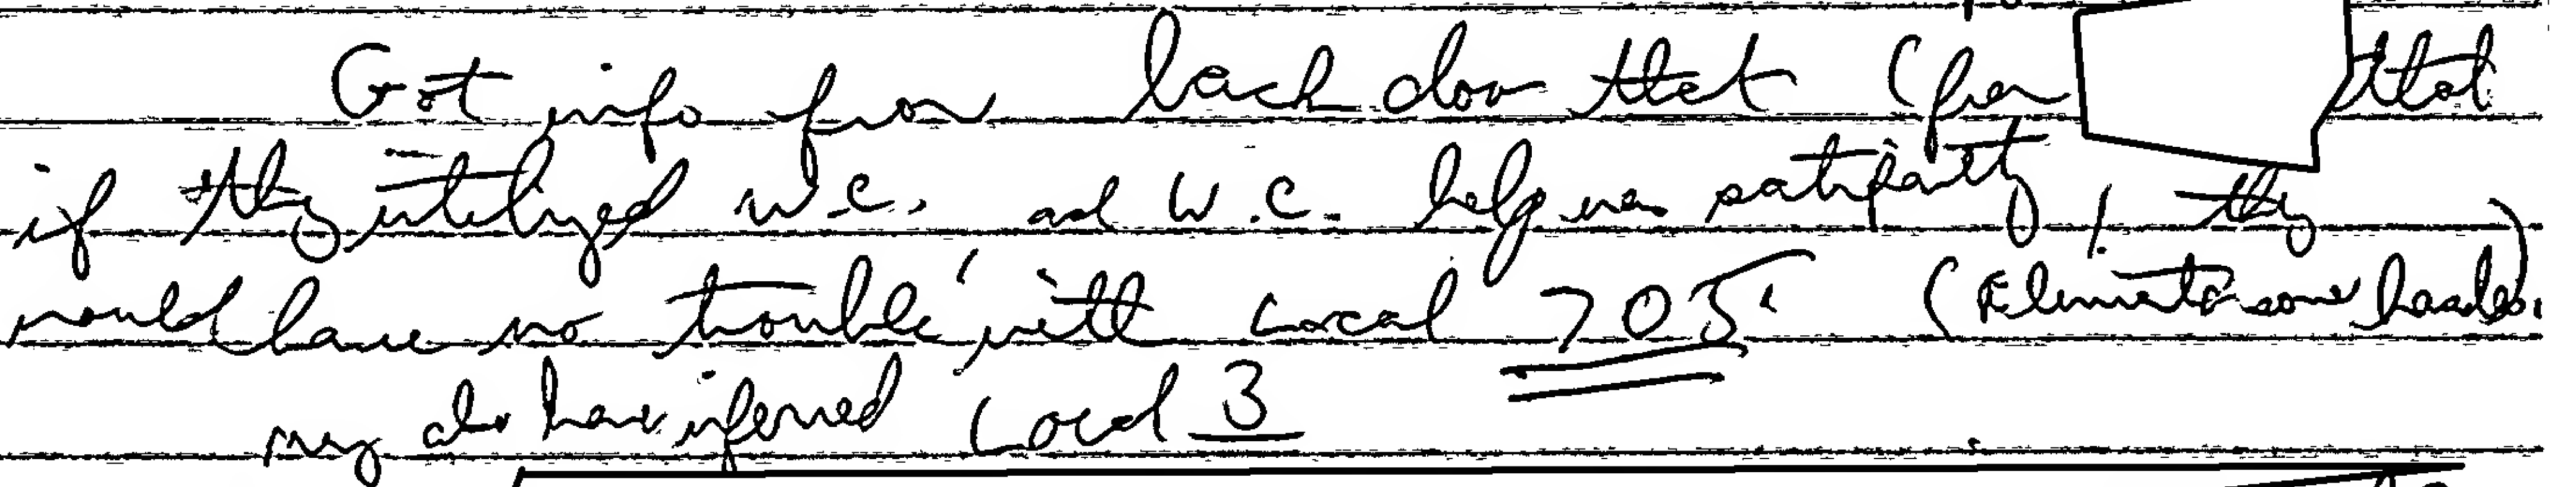 Got info from back door that (from that
if they utilized W.C. and W.C. help was satisfactory, they
would have no trouble with Local 705 (Eliminate some hassles)
may also have inferred Local 3